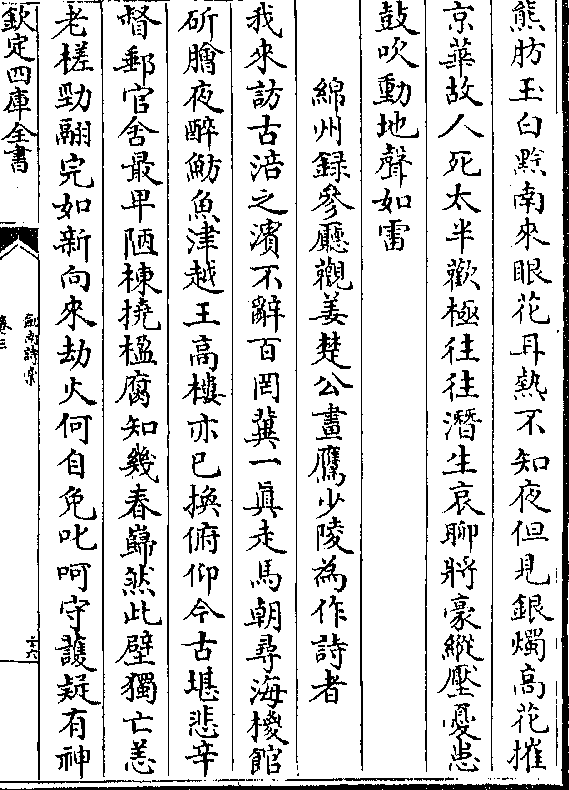 熊肪玉白黥南來眼花耳熱不知夜但見銀燭高花摧
京華故人死太半歡極往往潛生哀聊將豪縱壓憂患
鼓吹動地聲如雷
綿州錄參廳觀姜楚公畫鷹少陵為作詩者
我來訪古涪之濱不辭百罔冀一真走馬朝尋海椶館
斫膾夜醉魴魚津越王高樓亦已換俯仰今古堪悲辛
督郵官舍最卑陋棟撓楹腐知幾春巋然此壁獨亡恙
老槎勁翮完如新向來劫火何自免叱呵守護疑有神
欽定四庫全書
劍南詩稾
卷三